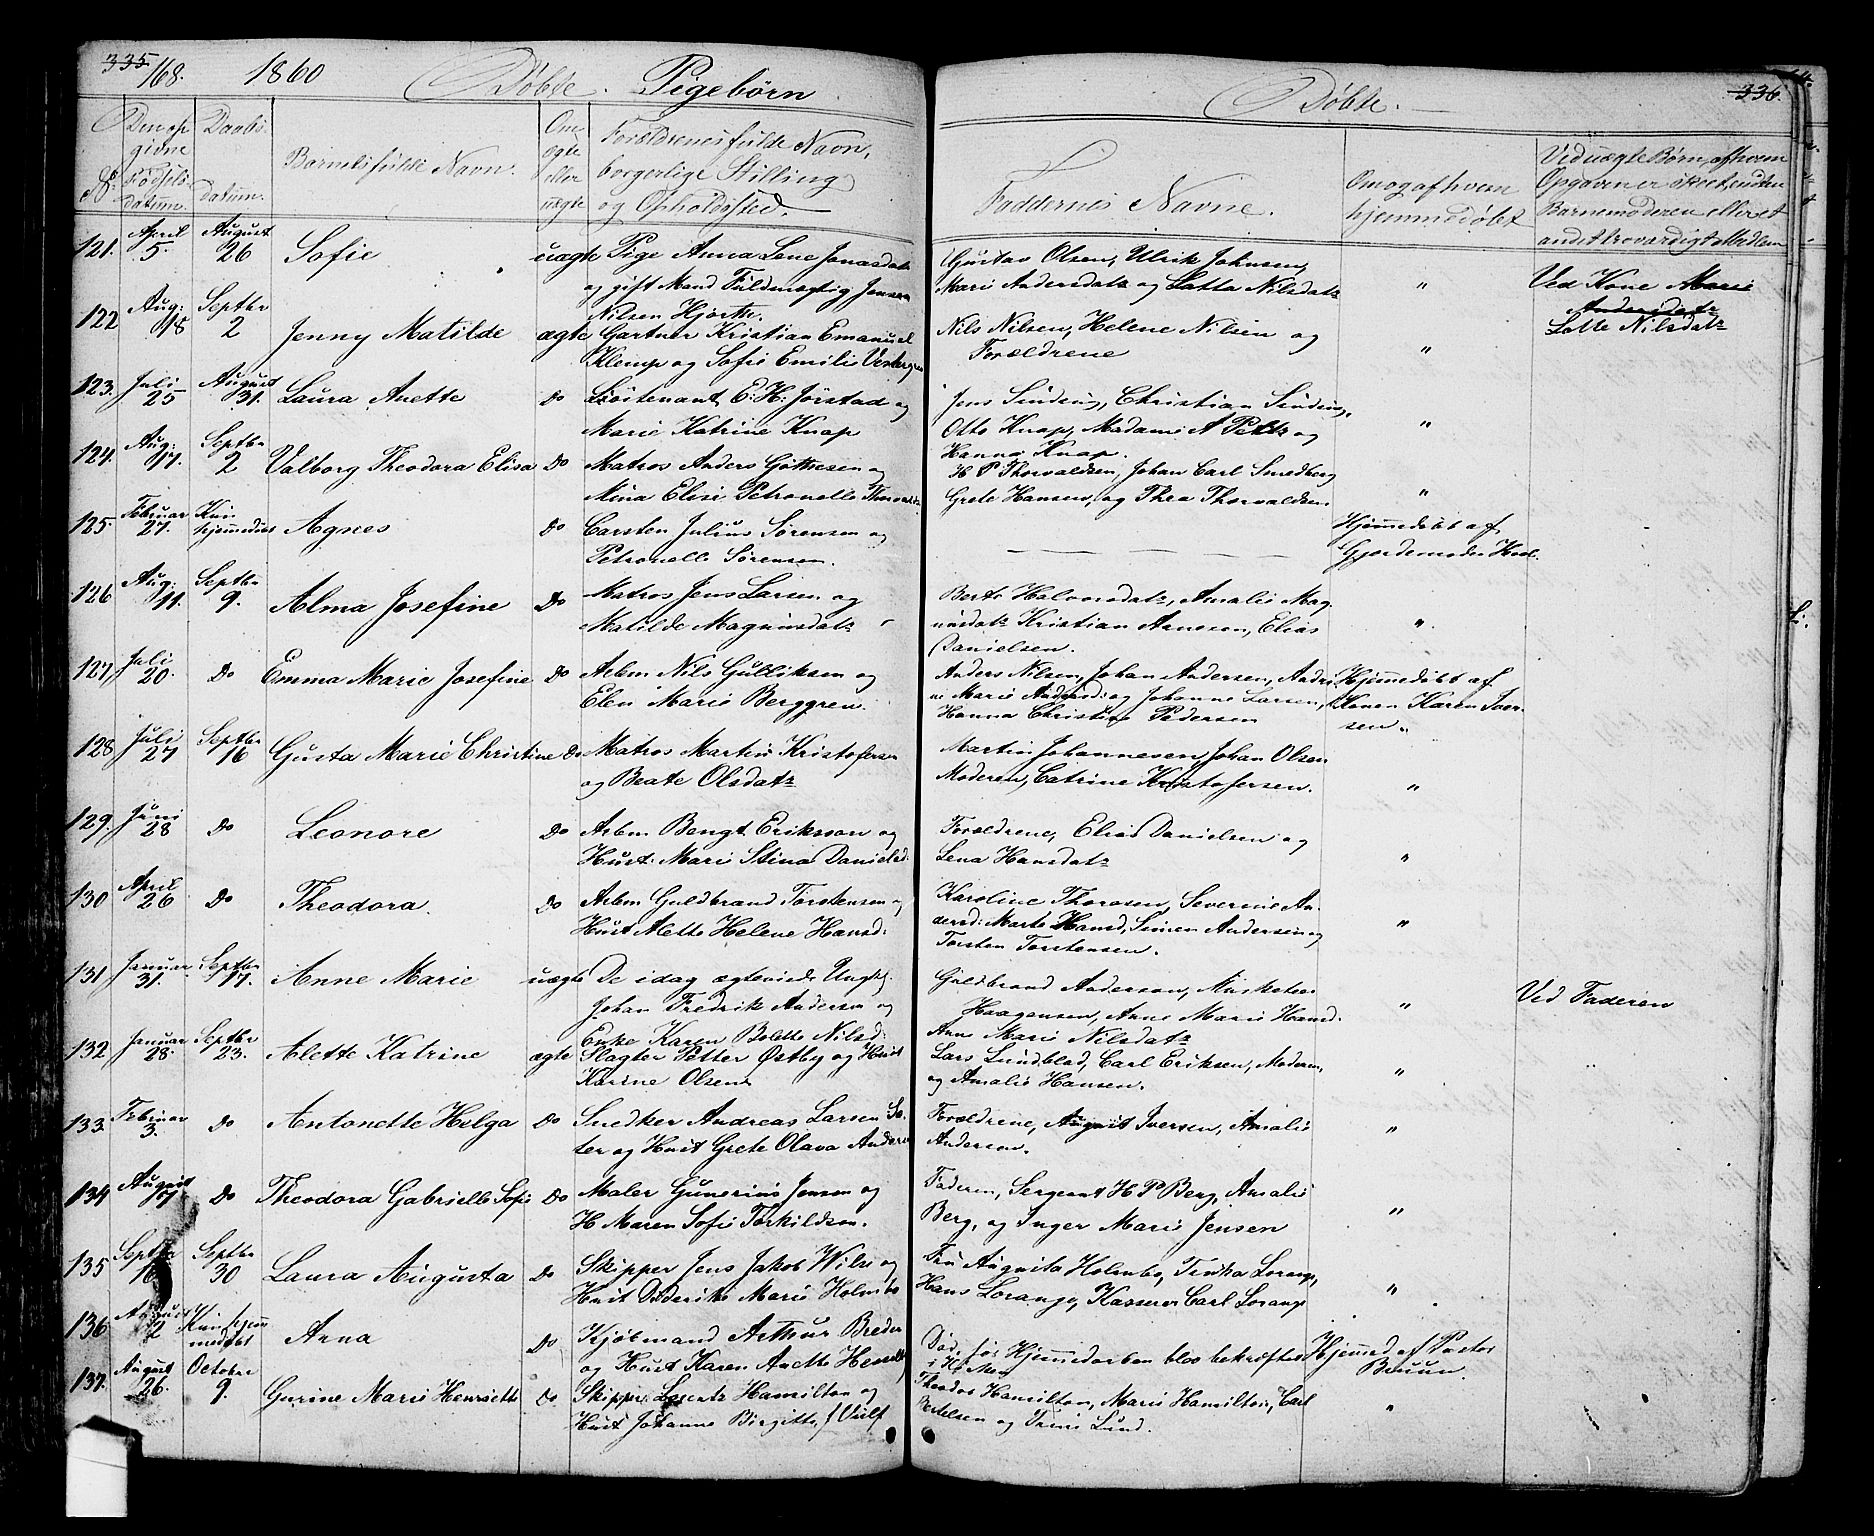 335. 168. 1860 Døbte. Pigebørn
No. Den opgivne Fødselsdatum. Daabsdatum. Barnets fulde Navn. Om ægte eller uægte Forældrenes fulde Navn, borgerlige Stilling og Opholdssted.
121. April 5. August 26 Sofie uægte Pige Anna Lene Jonasdatr
og gift Mand Fuldmægtig Jensen
Nilsen Hjorth.
122 Aug: 18 Septbr 2 Jenny Matilde ægte Gartner Kristian Emanuel
Klemp og Sofie Emilie
123. Juli 25 August 31. Laura Anette Do Løitenant E. H. Jørstad og
Marie Katrine Knap
124. Aug: 17. Septbr 2 Valborg Theodora Elisa Do Matros Anders Gøttesen og
Mina Elise Petronelle
125. Februar 27. Kun hjemmedøbt Agnes Do Carsten Julius Sørensen og
Petronelle Sørensen.
126 Aug: 11. Septbr 9. Alma Josefine Do Matros Jens Larsen og
Matilde Magnusdatr
127 Juli 20. Do Emma Marie Josefine Do Arbm Nils Gulliksen og
Elen Marie Berggren.
128 Juli 27 Septbr 16 Gusta Marie Christine Do Matros Martin Kristofersen
og Beate Olsdatr
129. Juni 28 Do Leonore Do Arbm Bengt Eriksson og
Hust: Mari Stina Danielsd:
130 April 26 Do Theodora. Do Arbm Guldbrand Torstensen og
Hust Alette Helene Hansd:
131 Januar 31. Septbr 17. Anne Marie uægte De idag ægteviede Ungk.
Johan Fredrik Andersen og
Enke Karen Bolette Nilsd:
132. Januar 28. Septbr 23. Alette Katrine ægte Slagter Petter Østby og Hust
Karine Olsen
133. Februar 3. Do Antonette Helga Do Snedker Andreas Larsen Sæ-
ter og Hust Grete Olava Andersen
134 August 17 Do Theodora Gabrielle Sofie Do Maler Gunerius Jensen og
H Maren Sofie Torkildsen.
135 Septbr 16 Septbr 30 Laura Augusta Do Skipper Jens Jakob Wilse og
Hust Diderike Marie Holmbo
136 August 2 Kun hjemmedøbt Anna Do Kjøbmand Arthur Breder
og Hust Karen Anette
137. August 26. October 9. Gurine Marie Henriette Do Skipper Lorentz Hamilton og
Hust Johanne Birgitte f Vulf
Døbte. 336.
Faddernes Navne. Om og af hvem hjemmedøbt Ved uægte Børn, af hvem Opgaven er skeet, enten Barnemoderen eller et andet troværdigt Medlem
Gustav Olsen, Ulrik Johnsen,
Marie Andersdatr og Lotta Nilsdatr " Ved Kone Marie
Andersdatr
Lotte Nilsdatr
Nils Nilsen, Helene Nilsen og
Forældrene "
Jens Sinding, Christian Sinding,
Otto Knap, Madame A og
Hanna Knap. "
H P Thorvaldsen, Johan Carl Smedberg
Grete Hansen, og Thea Thorvaldsen "
Hjemmedøbt af
Gjordemoder
Berte Halvorsdatr, Amalie Mag-
nusdatr Kristian Arnesen, Elias
Danielsen. "
Anders Nilsen, Johan Andersen, Andri-
ne Marie Andersd: og Johanne Larsen,
Hanna Christine Pedersen
Hjemmedøbt af
Konen Karen Iver-
sen.
Martin Johannesen, Johan Olsen
Moderen, Catrine Kristofersen. "
Forældrene, Elias Danielsen og
Lena Hansdatr "
Karoline Thoresen, Severine An-
dersd: Marte Hansd, Simen Andersen og
Torsten Torstensen. "
Guldbrand Andersen, Musketeer
Haagensen, Anne Marie Hansd. " Ved Faderen
Anne Marie Nilsdatr
Lars Lundblad, Carl Eriksen, Moderen,
og Amalie Hansen. "
Forældrene, August Iversen, Amalie
Andersen. "
Faderen, Sergeant H. P. Berg, Amalie
Berg, og Inger Marie Jensen "
Fru Augusta Holmbo, Tinka Lorange,
Hans Lorange, Kasserer Carl Lorange "
Død, før Hjemmedaaben blev bekræftet
i Kirken Hjemmed af Pastor
Bruun.
Theodor Hamilton, Marie Hamilton, Carl
Bertelsen og Trine Lund. "